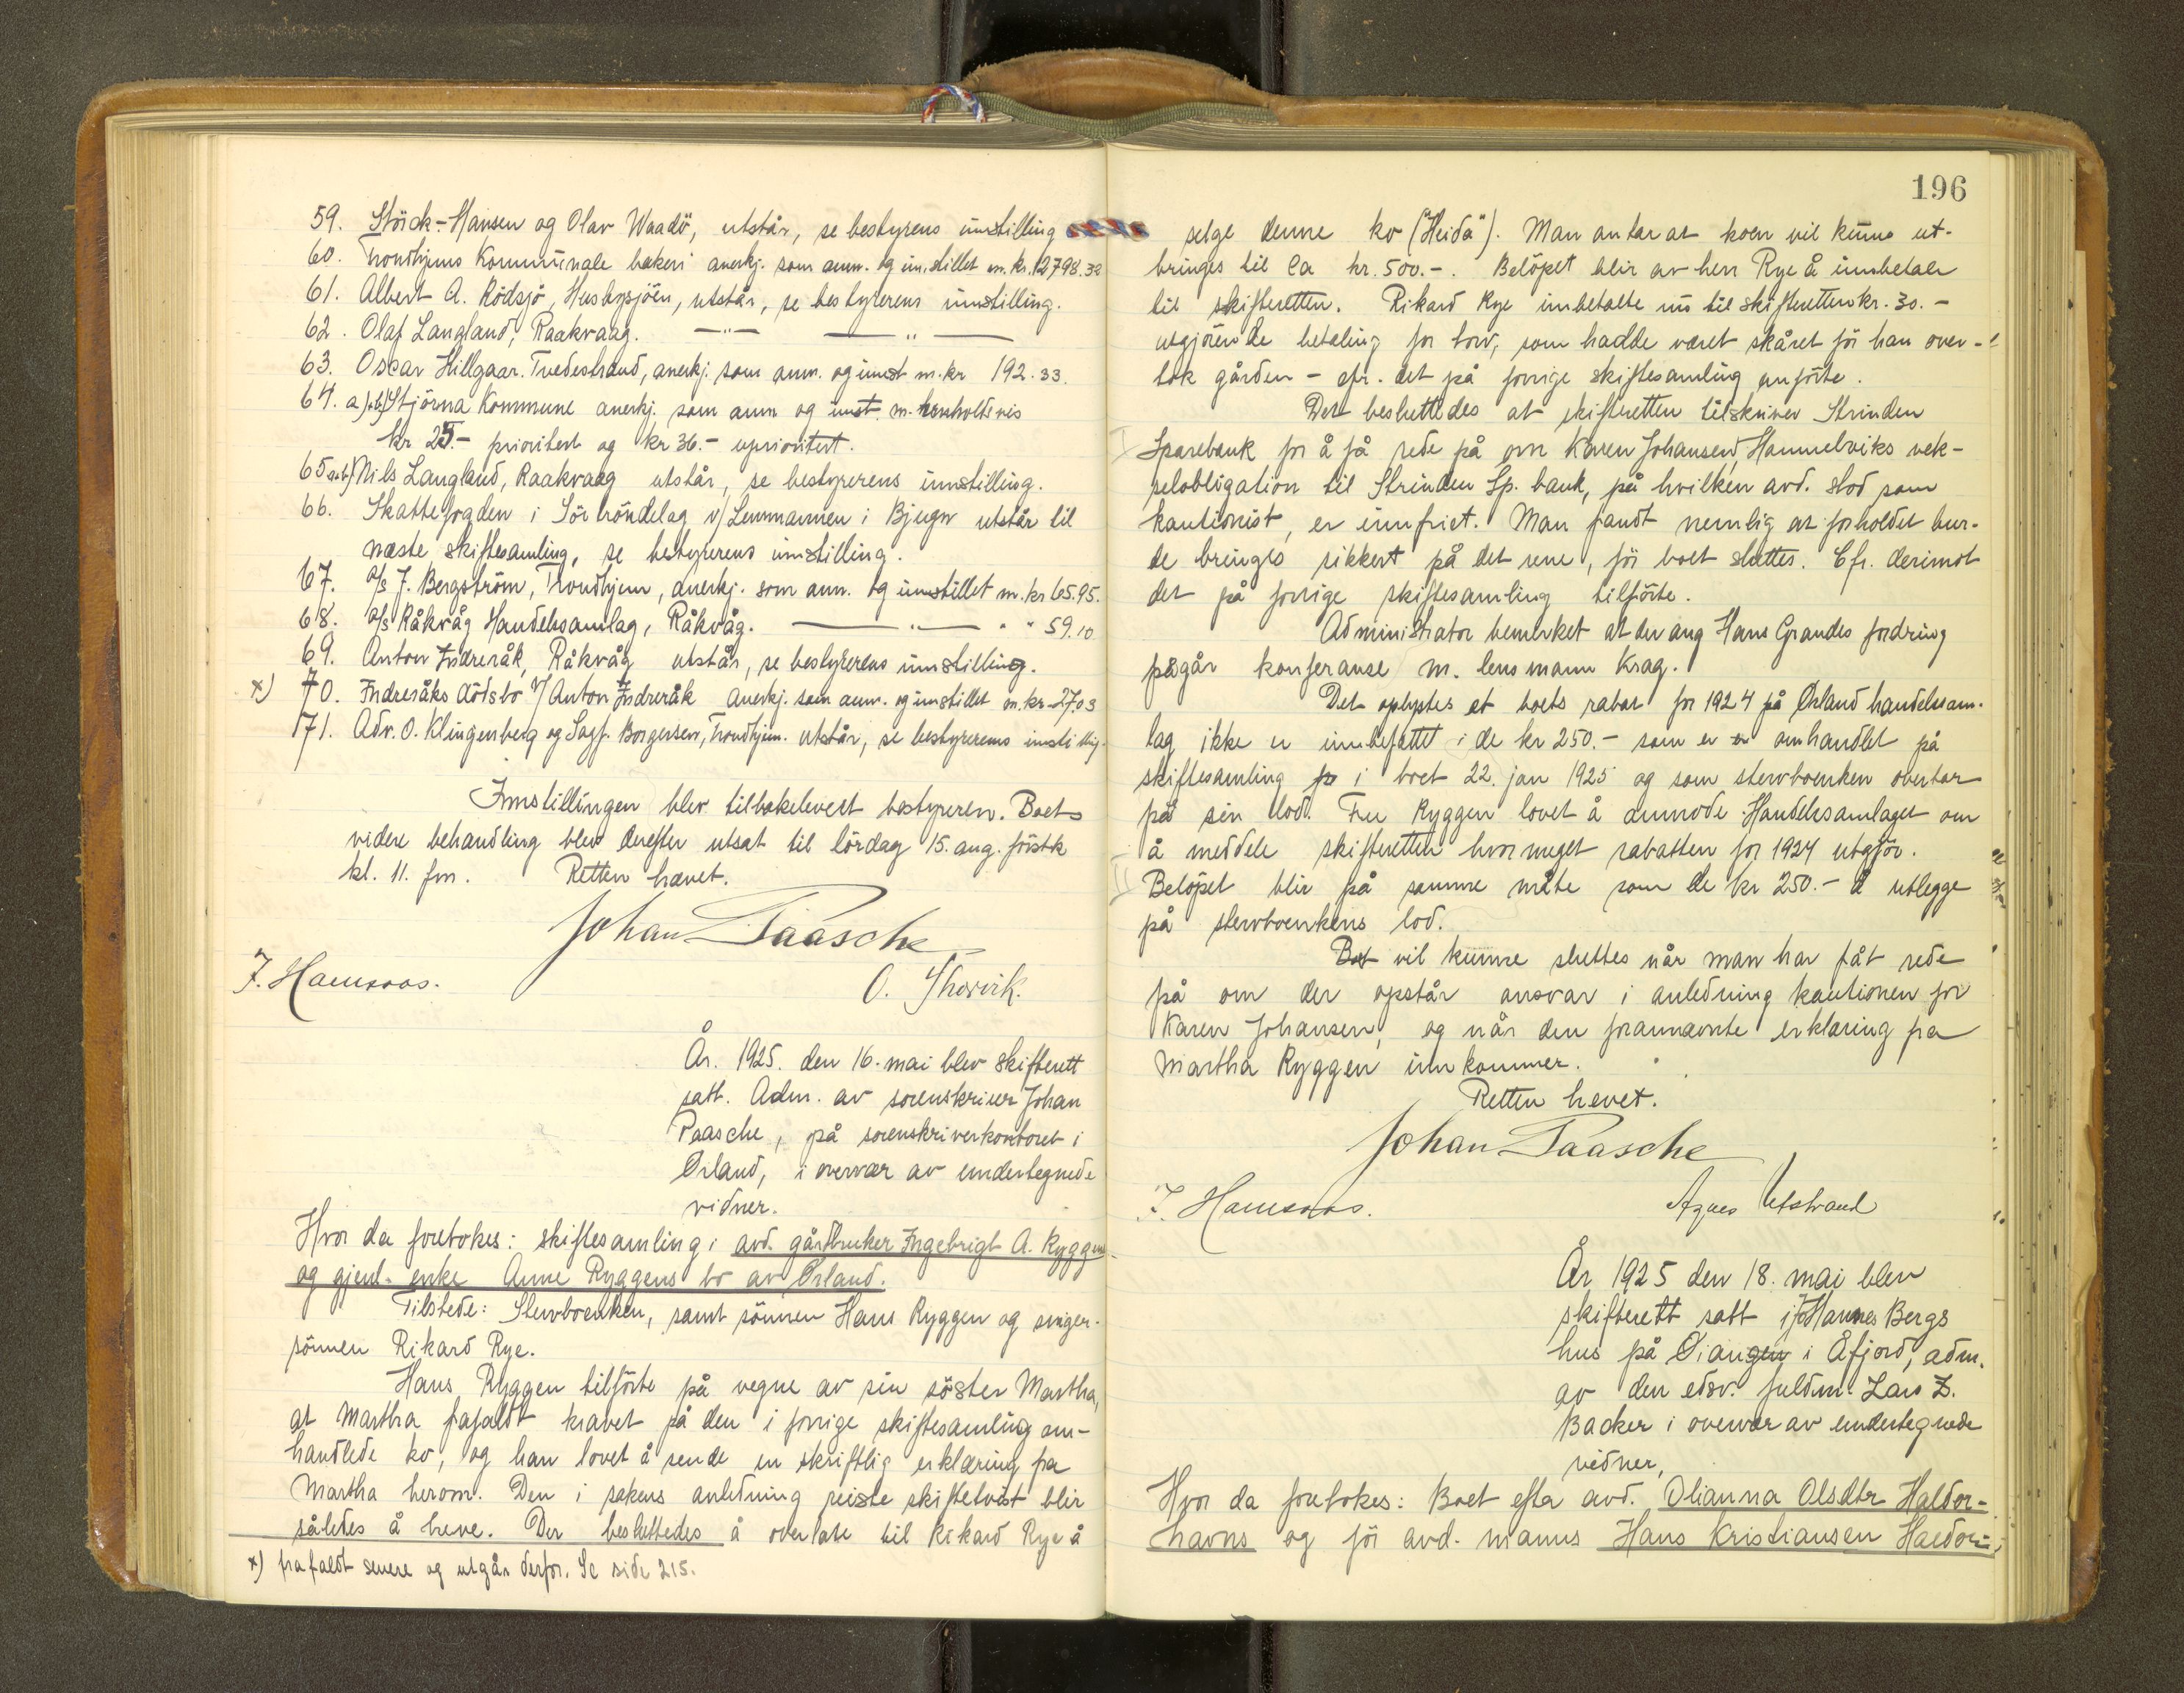 59. Störck-Hansen og Olav Waadö, utstår, se bestyrens innstilling
60. Trondhjems Kommunale bakeri anerkj. som anm. og innstillet m. kr. 12798.32
61. Albert A. Rödsjö, Husbysjöen, utstår, se bestyrerens innstilling.
62. Olaf Langland, Raakvaag. —"— —"—
63. Oscar Hillgaar. Tvedestrand, anerkj. som anm. og innst m. kr 192.33.
64. a)+b) Stjörna Kommune anerkj. som anm og innst m. henholdsvis
kr 25.- prioritert og kr 36.- uprioritert.
65 a+b) Nils Langland, Raakvaag utstår, se bestyrerens innstilling.
66. Skattefogden i Sör Tröndelag v/ Lensmannen i Bjugn utstår til
næste skiftesamling, se bestyrerens innstilling.
67. A/s J. Bergström, Trondhjem, anerkj. som anm. og innstillet m. kr 165.95.
68. A/s Råkvåg Handelsamlag, Råkvåg. —"— " " 59.10
69. Anton Indreråk, Råkvåg utstår, se bestyrerens innstilling.
x) 70. Indreråks dödsbo v/ Anton Indreråk anerkj. som anm. og innstillet m. kr. 27.03
71. Adv. O. Klingenberg og Sagf. Borgersen, Trondhjem. utstår, se bestyrerens innstilling.
Innstillingen blev tilbakelevert bestyreren. Boets
videre behandling blev derefter utsat til lördag 15. aug. förstk
kl. 11. fm. Retten hævet.
Johan Paasche
F. Hamsaas. O. Thorvik.
År. 1925. den 16. mai blev skifterett
satt. Adm. av sorenskriver Johan
Paasche, på sorenskriverkontoret i
Ørland, i overvær av undertegnede
vidner.
Hvor da foretokes: skiftesamling i avd. gårdbruker Ingebrigt A. Ryggens
og gjenl. enke Anne Ryggens bo av Ørland.
Tilstede: Stervboenken, samt sönnen Hans Ryggen og sviger-
sönnen Rikard Rye.
Hans Ryggen tilförte på vegne av sin söster Martha,
at Martha frafaldt kravet på den i forrige skiftesamling om-
handlede ko, og han lovet å sende en skriftlig erklæring fra
Martha herom. Den i sakens anledning reiste skiftetvist blir
således å heve. Der besluttedes å overlate til Rikard Rye å
x) frafaldt senere og utgår derfor. Se side 215.
196
selge denne ko ("Heida"). Man antar at koen vil kunne ut-
bringes til ca kr. 500.-. Belöpet blir av herr Rye å innbetale
til skifteretten. Rikard Rye innbetalte nu til skifteretten kr. 30.-
utgjörende betaling for torv, som hadde været skåret för han over-
tok gården - cfr. det på forrige skiftesamling anförte.
Det besluttedes at skifteretten tilskriver Strinden
Sparebank for å få rede på om Karen Johansen Hammelviks vek-
selobligation til Strinden Sp. bank, på hvilken avd. stod som
kautionist, er innfriet. Man fandt nemlig at forholdet bur-
de bringes sikkert på det rene, för boet sluttes. Cfr. derimot
det på forrige skiftesamling tilförte.
Administrator bemerket at der ang Hans Grandes fordring
pågår konferanse m. lensmann Krag.
Det oplystes at boets rabat for 1924 på Ørland handelssam-
lag ikke er innbefattet i de kr 250.- som er omhandlet på
skiftesamling i boet 22. jan 1925 og som stervboenken overtar
på sin lod. Fru Ryggen lovet å anmode Handelssamlaget om
å meddele skifteretten hvor meget rabatten for 1924 utgjör.
Belöpet blir på samme måte som de kr 250.- å utlegge
på stervboenkens lod.
Boet vil kunne sluttes når man har fåt rede
på om der opstår ansvar i anledning kautionen for
Karen Johansen, og når den forannævnte erklæring fra
Martha Ryggen innkommer.
Retten hevet.
Johan Paasche
F. Hamsaas. Agnes Utstrand
År 1925 den 18. mai blev
skifterett satt i Johannes Bergs
hus på Øiangen i Åfjord, adm.
av den edsv. fuldm. Lars Z.
Backer i overvær av undertegnede
vidner,
Hvor da foretokes: Boet efter avd. Olianna Olsdtr Haldor-
havns og för avd. manns Hans Kristiansen Haldor-